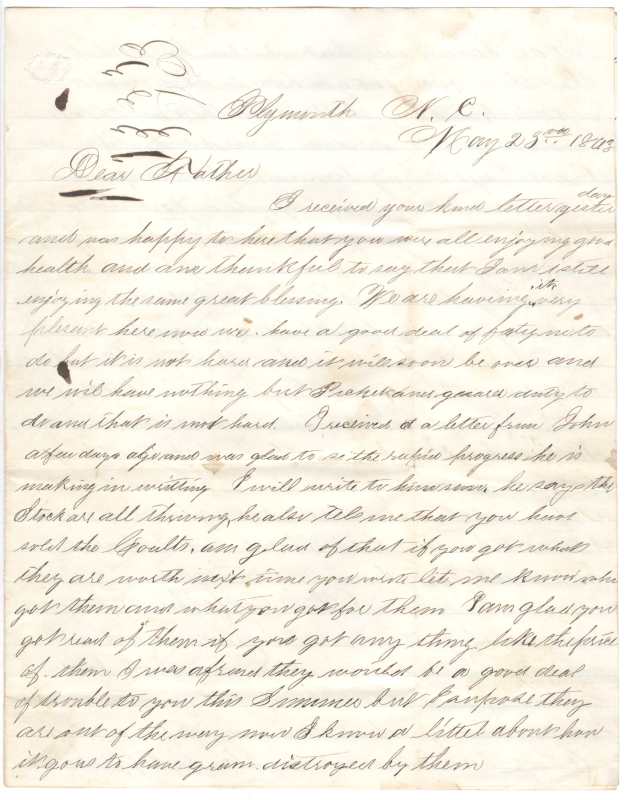 Plymouth N. C.
May 23rd 1863
Dear Father
I received your kind letter yester day
and was happy to here that you were all enjoying good
health and am thankful to say that I am still
enjoying the same great blessing. We are having it very
plesant here now we have a good deal of fatyuie to
do but it is not hard and it will soon be over and
we will have nothing but Picket and guard duty to
do and that is not hard. I received a letter from John
a few days ago and was glad to se the rapid progress he is
making in writing I will write to him soon. he says the
Stock are all thriving, he also tels me that you have
sold the Coults, am glad of that if you got what
they are worth next time you write let me know who
got them and what you got for them I am glad you
got read of them if you got any thing like the price
of them I was afraid they would be a good deal
of trouble to you this Summer but I supose they
are out of the way now I know a littel about how
it gous to have grain distroyed by them